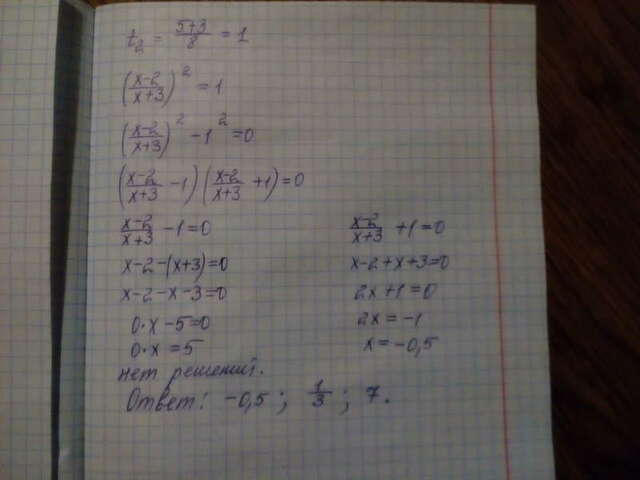 t₂ = (5+3)/8 = 1
((x-2)/(x+3))² = 1
((x-2)/(x+3))² - 1² = 0
((x-2)/(x+3) - 1)((x-2)/(x+3) + 1) = 0
(x-2)/(x+3) - 1 = 0
x-2-(x+3)=0
x-2-x-3=0
0·x-5=0
0·x=5
нет решений.
(x-2)/(x+3) + 1 = 0
x-2+x+3=0
2x+1=0
2x=-1
x=-0,5
Ответ: -0,5; 1/3; 7.